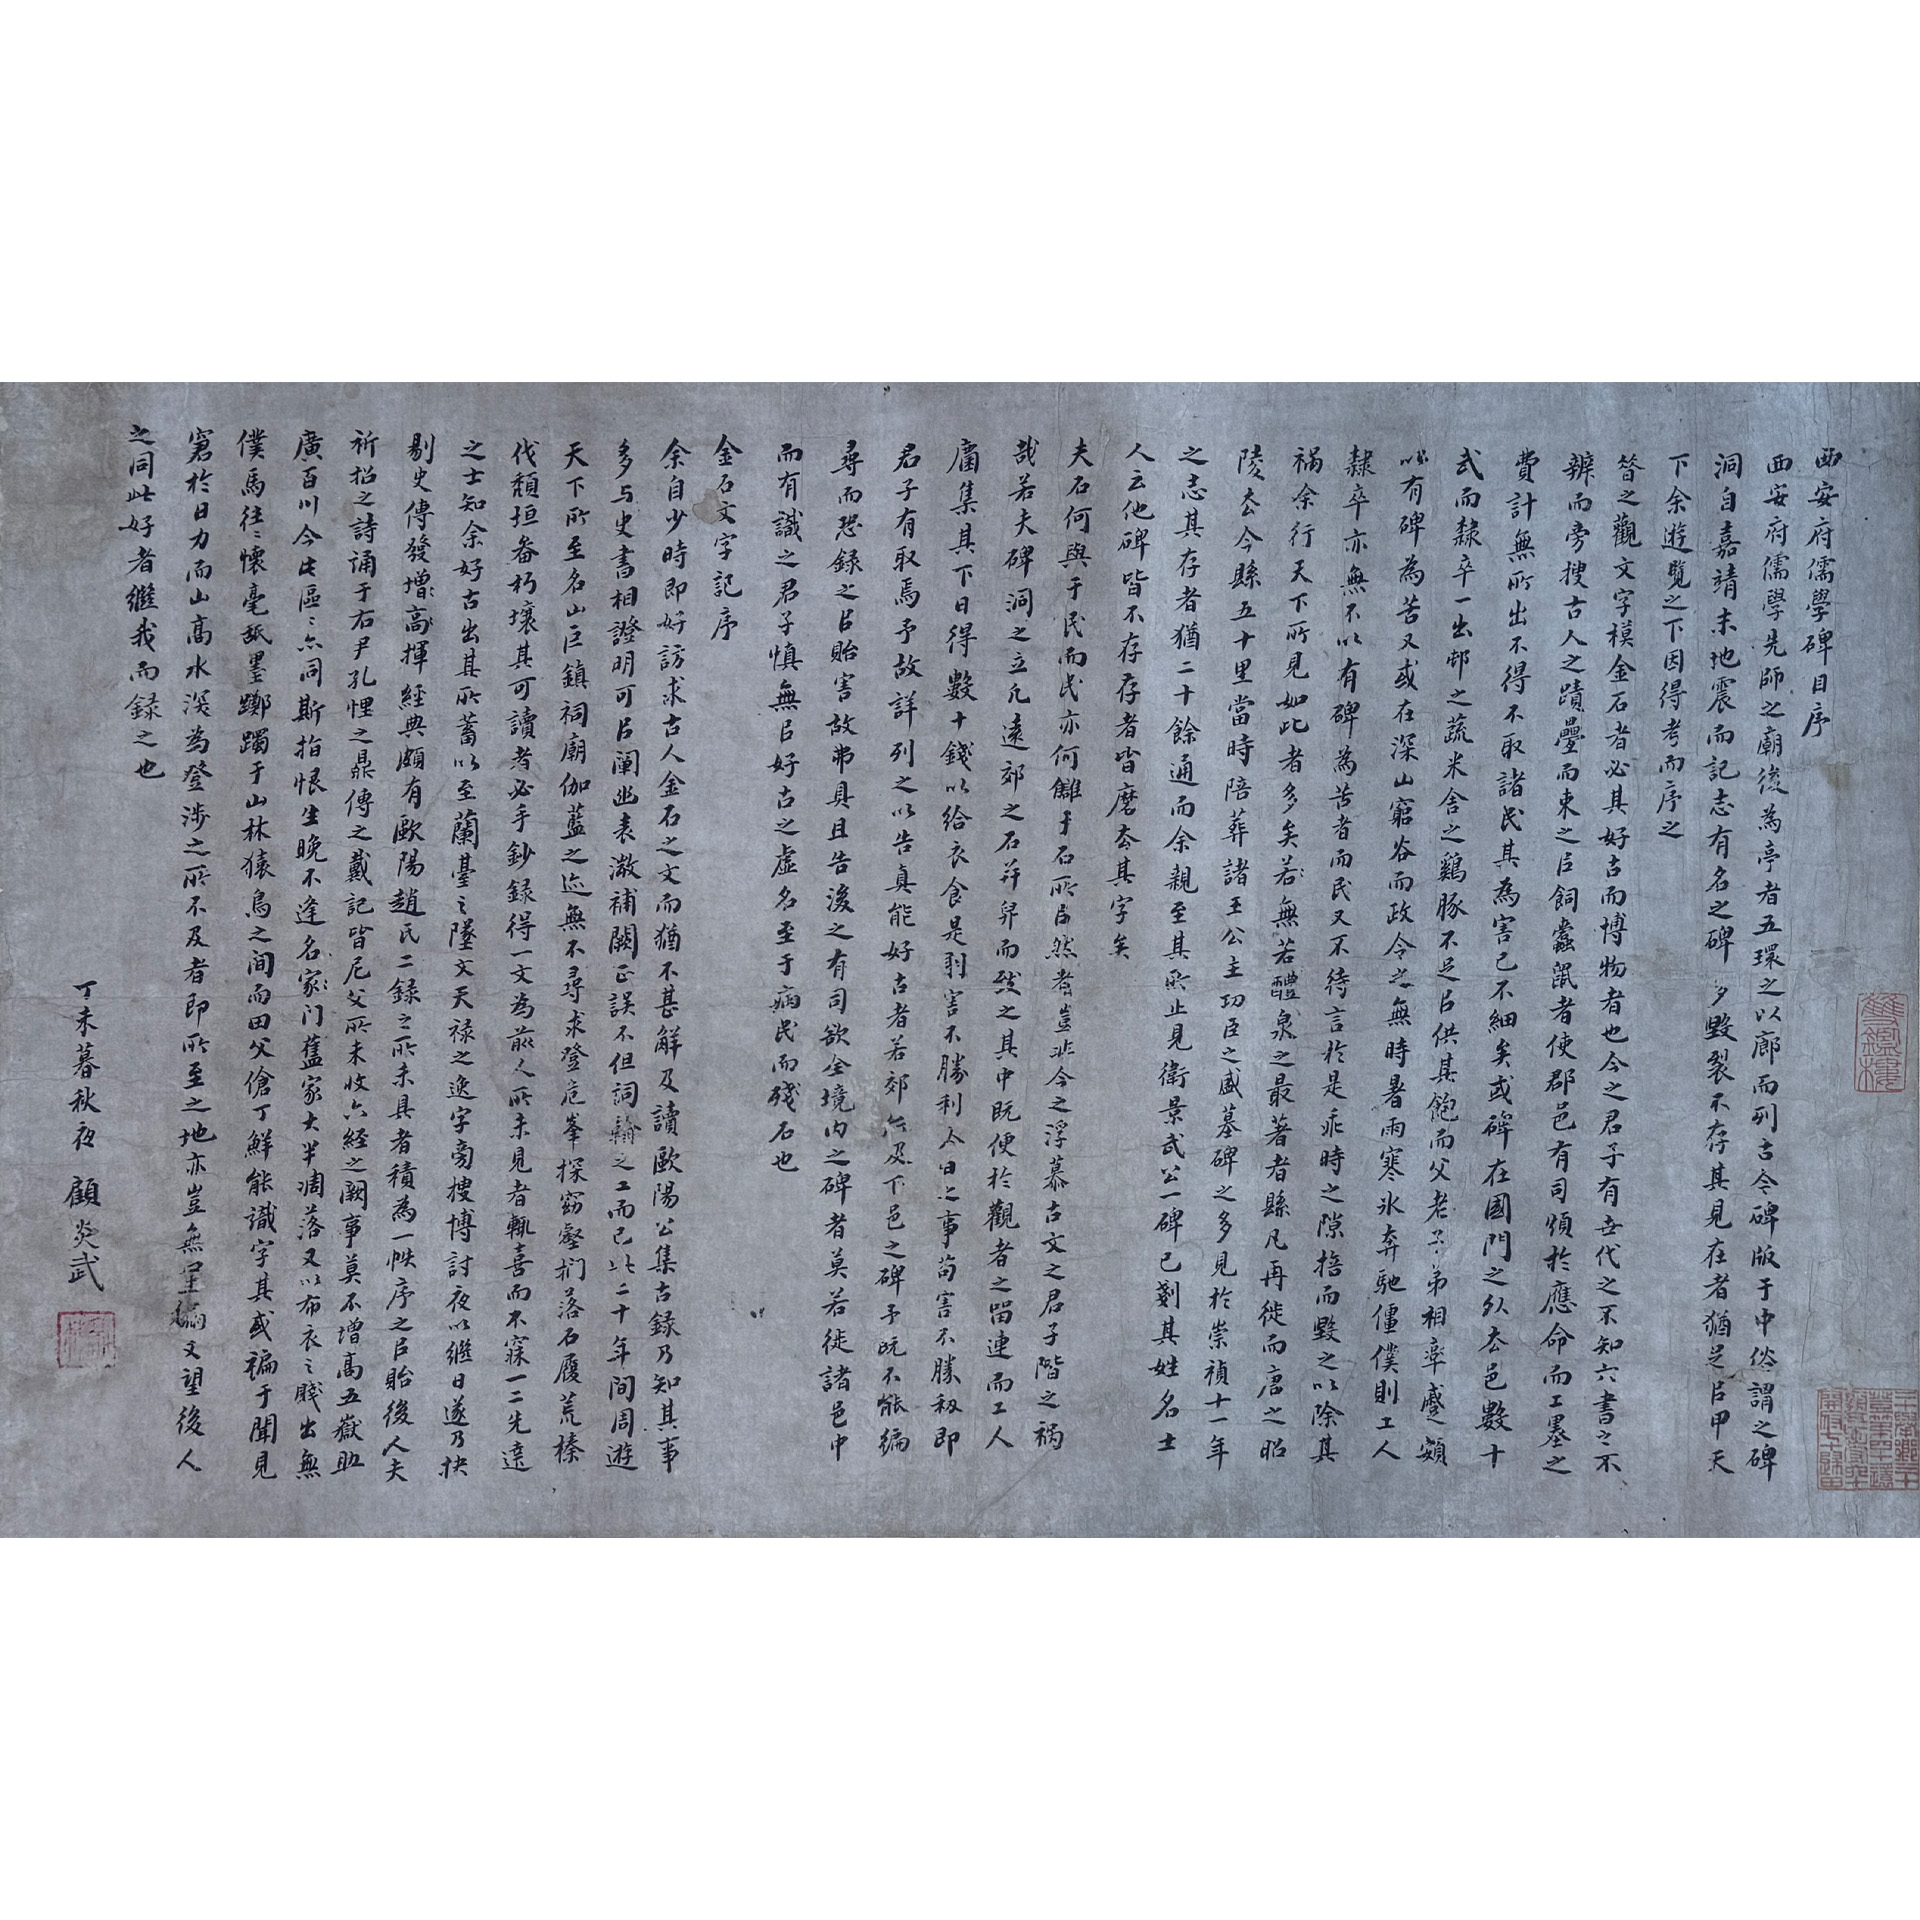 西安府儒學碑目序
西安府儒學先師之廟後為亭者五環之以廊而列古今碑版于中俗謂之碑
洞自嘉靖末地震而記志有名之碑多毀裂不存其見在者猶足㠯甲天
下余遊覽之下因得考而序之
昔之觀文字模金石者必其好古而博物者也今之君子有世代之不知六書之不
辨而旁搜古人之蹟疊而束之㠯飼蠹鼠者使郡邑有司煩於應命而工墨之
費計無所出不得不取諸民其為害已不細矣或碑在國門之外去邑數十
武而隸卒一出邨之蔬米舍之鷄豚不足㠯供其飽而父老子弟相率蹙頞
以有碑為苦又或在深山窮谷而政令之無時暑雨寒冰奔馳僵僕則工人
隸卒亦無不以有碑為苦者而民又不待言於是乖時之隙掊而毀之以除其
禍余行天下所見如此者多矣若無若醴泉之最著者縣凡再徙而唐之昭
陵去今縣五十里當時陪葬諸王公主功臣之盛墓碑之多見於崇禎十一年
之志其存者猶二十餘通而余親至其所止見衛景武公一碑已剗其姓名士
人云他碑皆不存存者皆磨去其字矣
夫石何與于民而民亦何讎于石所㠯然者豈非今之浮慕古文之君子階之禍
哉若夫碑洞之立凡遠郊之石并舁而致之其中既便於觀者之留連而工人
圍集其下日得數十錢以給衣食是則害不勝利今日之事苟害不勝利即
君子有取焉予故詳列之以告真能好古者若郊外及下邑之碑予既不能徧
尋而恐錄之㠯貽害故弗具且告後之有司欲全境内之碑者莫若徙諸邑中
而有識之君子慎無㠯好古之虛名至于病民而殘石也
金石文字記序
余自少時即好訪求古人金石之文而猶不甚解及讀歐陽公集古錄乃知其事
多与史書相證明可㠯闡幽表㣲補闕正誤不但詞翰之工而已比二十年间周遊
天下所至名山巨鎮祠廟伽藍之迹無不尋求登危峯探窈壑捫落石履荒榛
伐頹垣畚朽壤其可讀者必手鈔錄得一文為前人所未見者輒喜而不寐一二先達
之士知余好古出其所蓄以至蘭臺之墜文天禄之逸字旁搜博討夜以繼日遂乃抉
剔史傳發揮經典頗有歐陽趙氏二錄之所未具者積為一帙序之㠯貽後人夫
祈招之詩誦于右尹孔悝之鼎傳之戴記皆尼父所未收六経之闕事莫不增高五嶽助
廣百川今此區〻亦同斯指恨生晚不逢名家门舊家大半凋落又以布衣之賤出無
僕馬往〻懷毫舐墨躑躅于山林猿鳥之间而田父傖丁鮮能識字其或褊于聞見
窘於日力而山高水深為登涉之所不及者即所至之地亦豈無望後人
之同此好者繼我而録之也
丁未暮秋夜 顧炎武
雙鑑樓